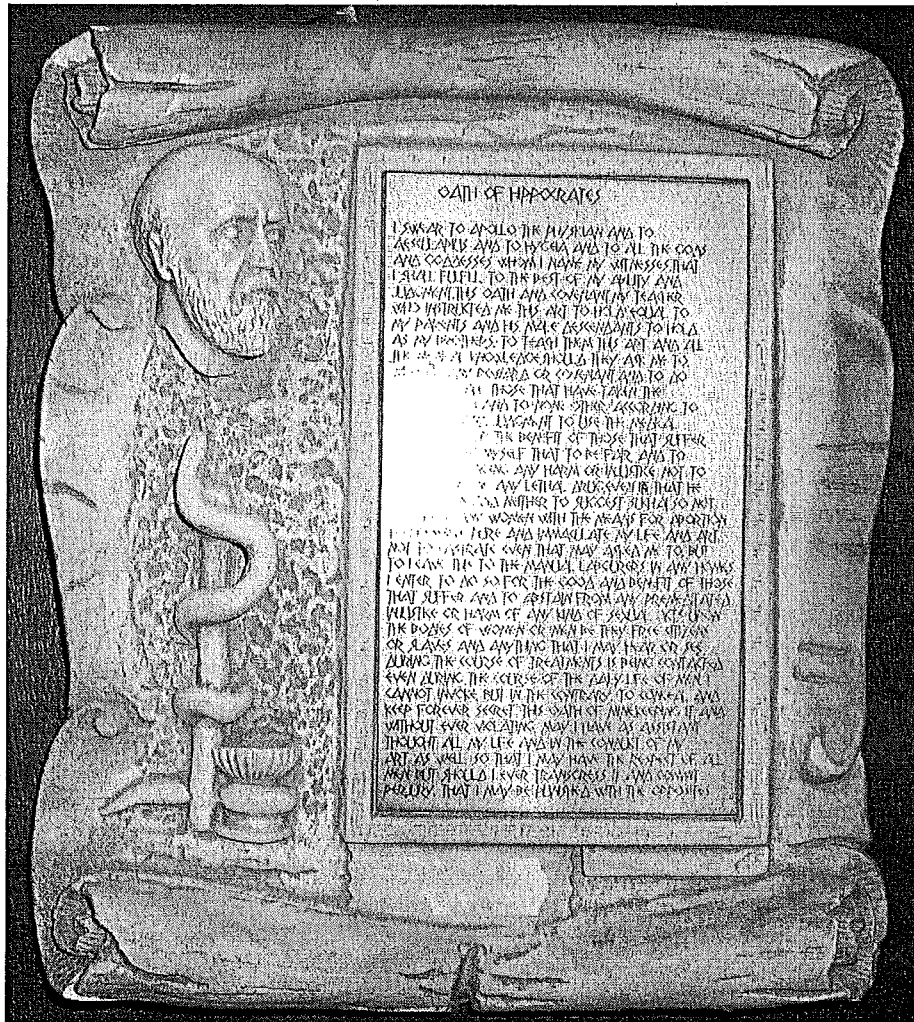 OATH OF HIPPOCRATES
I SWEAR TO APOLLO THE PHYSICIAN AND TO
AESCULAPIUS AND TO HYGEIA AND TO ALL THE GODS
AND GODDESSES WHOM I NAME MY WITNESSES THAT
I SHALL FULFILL TO THE BEST OF MY ABILITY AND
JUDGMENT THIS OATH AND COVENANT MY TEACHER
WHO INSTRUCTED ME THIS ART TO HOLD EQUAL TO
MY PARENTS AND HIS MALE DESCENDANTS TO HOLD
AS MY BROTHERS. TO TEACH THEM THIS ART AND ALL
KNOWLEDGE SHOULD THEY ASK ME TO
REWARD OR COVENANT AND TO DO
THOSE THAT HAVE TAKEN THE
AND TO NONE OTHER. ACCORDING TO
JUDGMENT TO USE THE MEDICAL
THE BENEFIT OF THOSE THAT SUFFER
MYSELF THAT TO BE FAIR AND TO
ANY HARM OR INJUSTICE NOT TO
ANY LETHAL DRUG EVEN IF THAT HE
NEITHER TO SUGGEST SUCH. ALSO NOT
WOMEN WITH THE MEANS FOR ABORTION
PURE AND IMMACULATE MY LIFE AND ART.
NOT TO CASTRATE EVEN THAT MAY ASKED ME TO. BUT
TO LEAVE THIS TO THE MANUAL LABOURERS. IN ANY HOMES
I ENTER TO DO SO FOR THE GOOD AND BENEFIT OF THOSE
THAT SUFFER AND TO ABSTAIN FROM ANY PREMEDITATED
INJUSTICE OR HARM OF ANY KIND OF SEXUAL ACTS UPON
THE BODIES OF WOMEN OR MEN BE THEY FREE CITIZENS
OR SLAVES AND ANYTHING THAT I MAY HEAR OR SEE
DURING THE COURSE OF TREATMENTS IS BEING CONTACTED
EVEN DURING THE COURSE OF THE DAILY LIFE OF MEN. I
CANNOT INVOKE BUT IN THE CONTRARY TO CONCEAL AND
KEEP FOREVER SECRET. THIS OATH OF MINE KEEPING IT AND
WITHOUT EVER VIOLATING MAY I HAVE AS ASSISTANT
THOUGHT ALL MY LIFE AND IN THE CONDUCT OF MY
ART AS WELL. SO THAT I MAY HAVE THE RESPECT OF ALL
MEN BUT SHOULD I EVER TRANSGRESS IT AND COMMIT
PERJURY. THAT I MAY BE PUNISHED WITH THE OPPOSITES